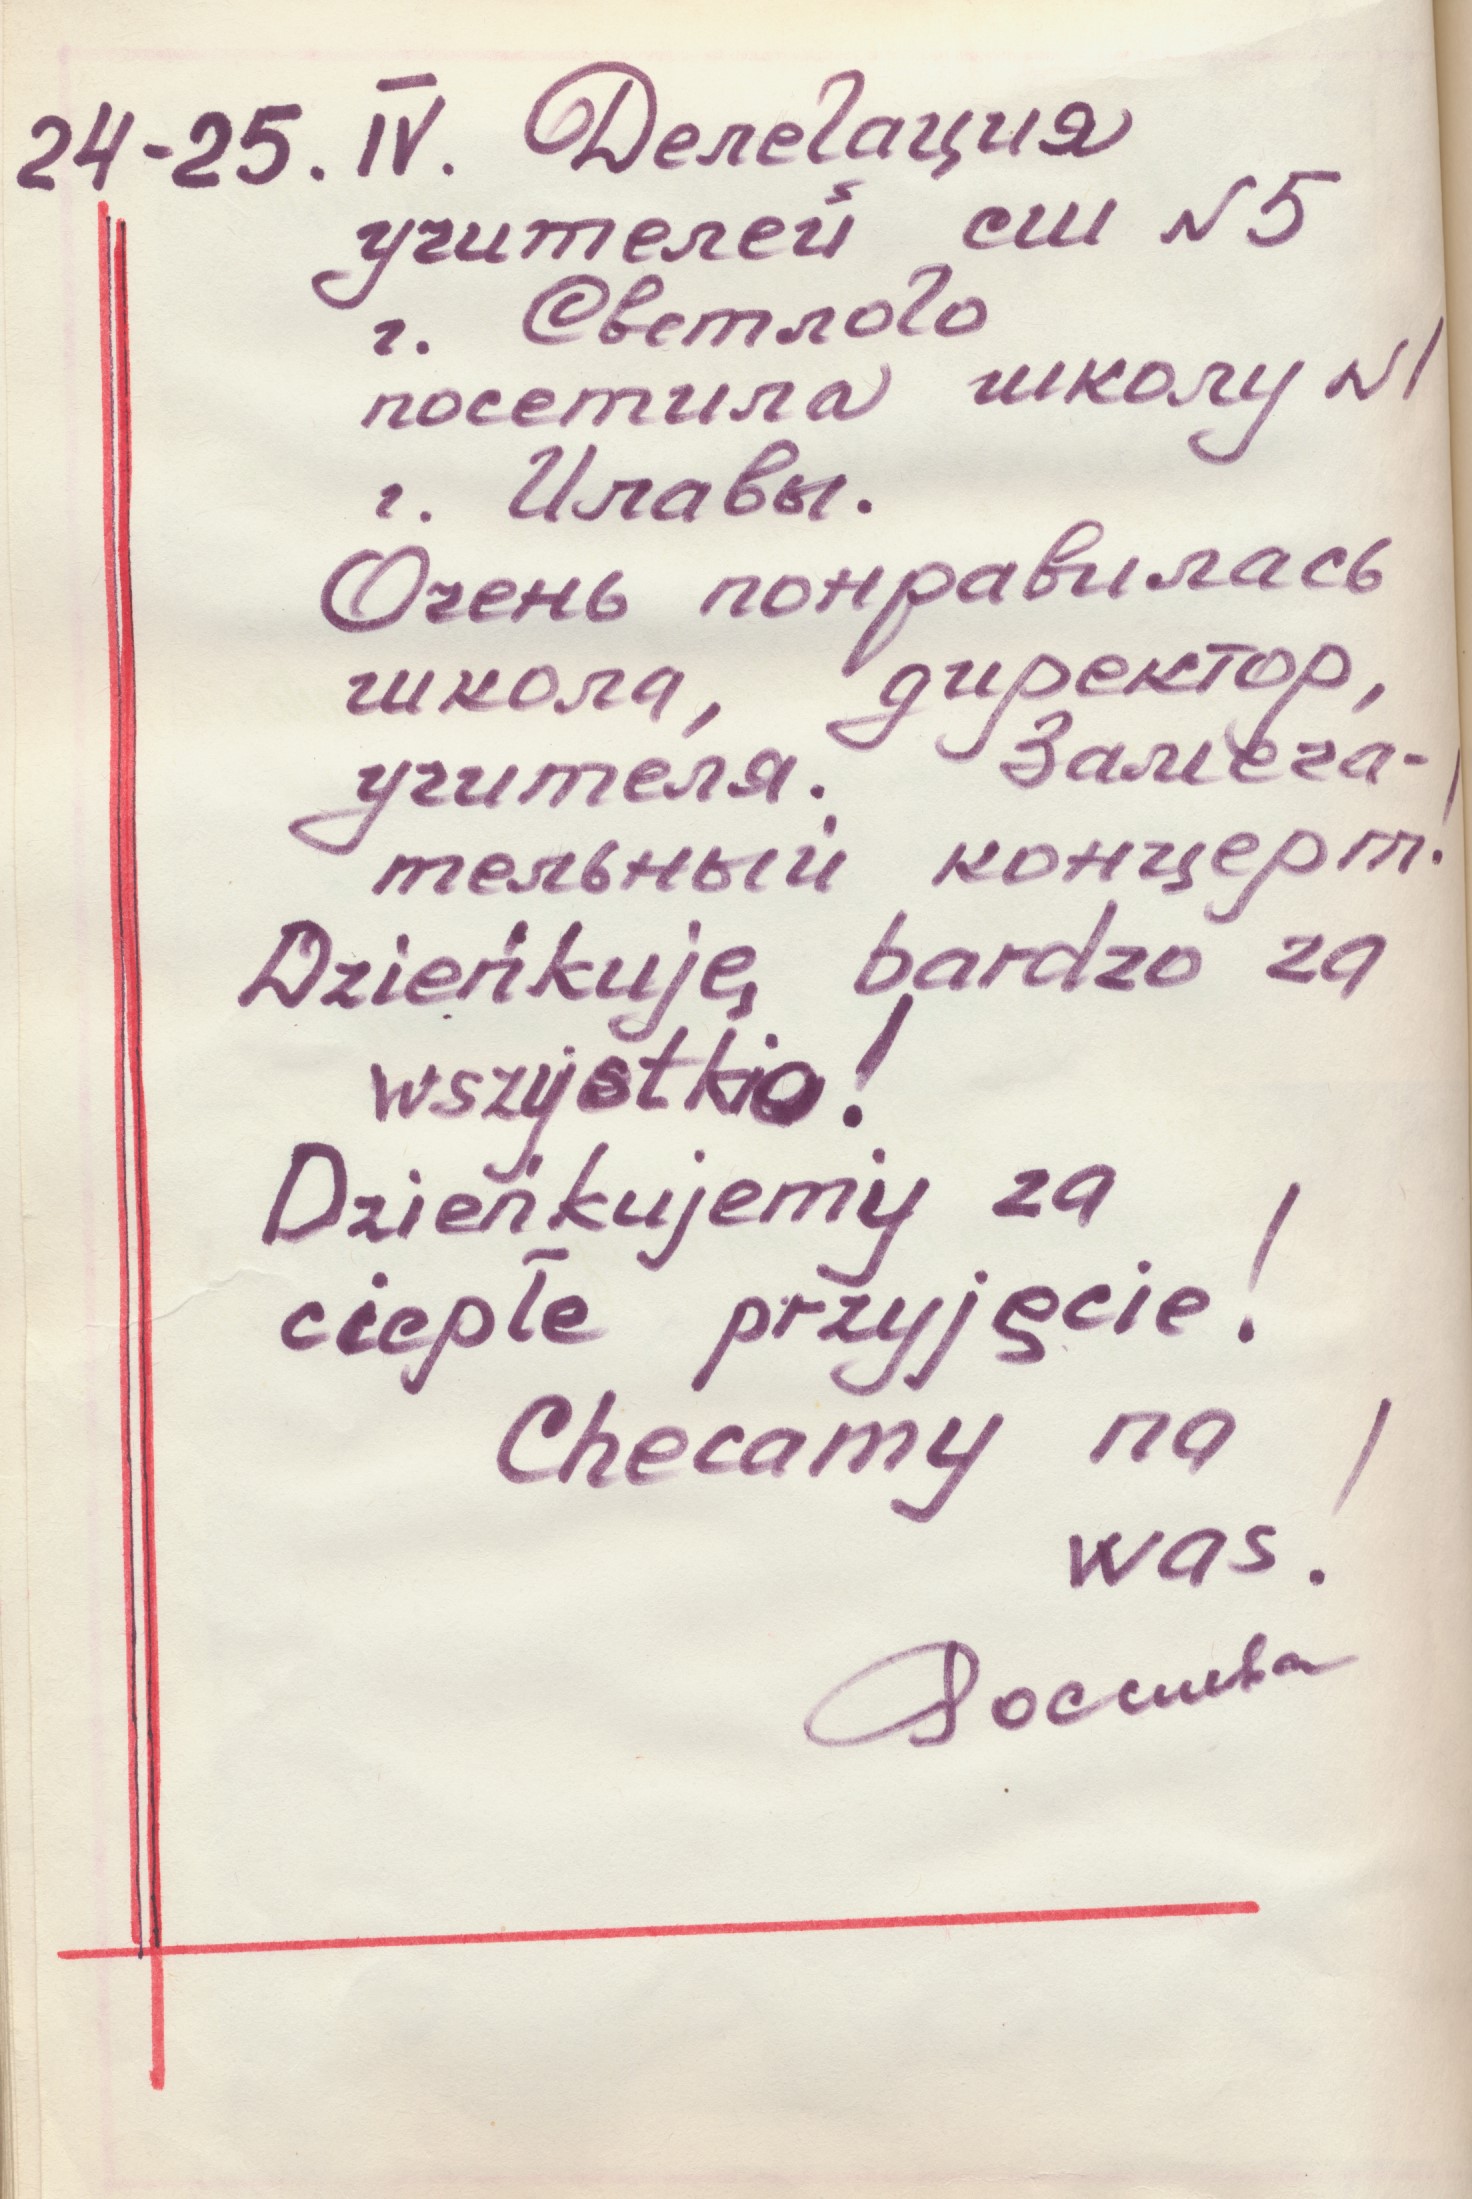 24-25. IV. Делегация
учителей сш №5
г. Светлого
посетила школу №1
г. Илавы.
Очень понравилась
школа, директор,
учителя. Замеча-
тельный концерт!
Dzieńkuję bardzo za
wszystko!
Dzieńkujemy za
ciepłe przyjęcie!
Checamy na
was!